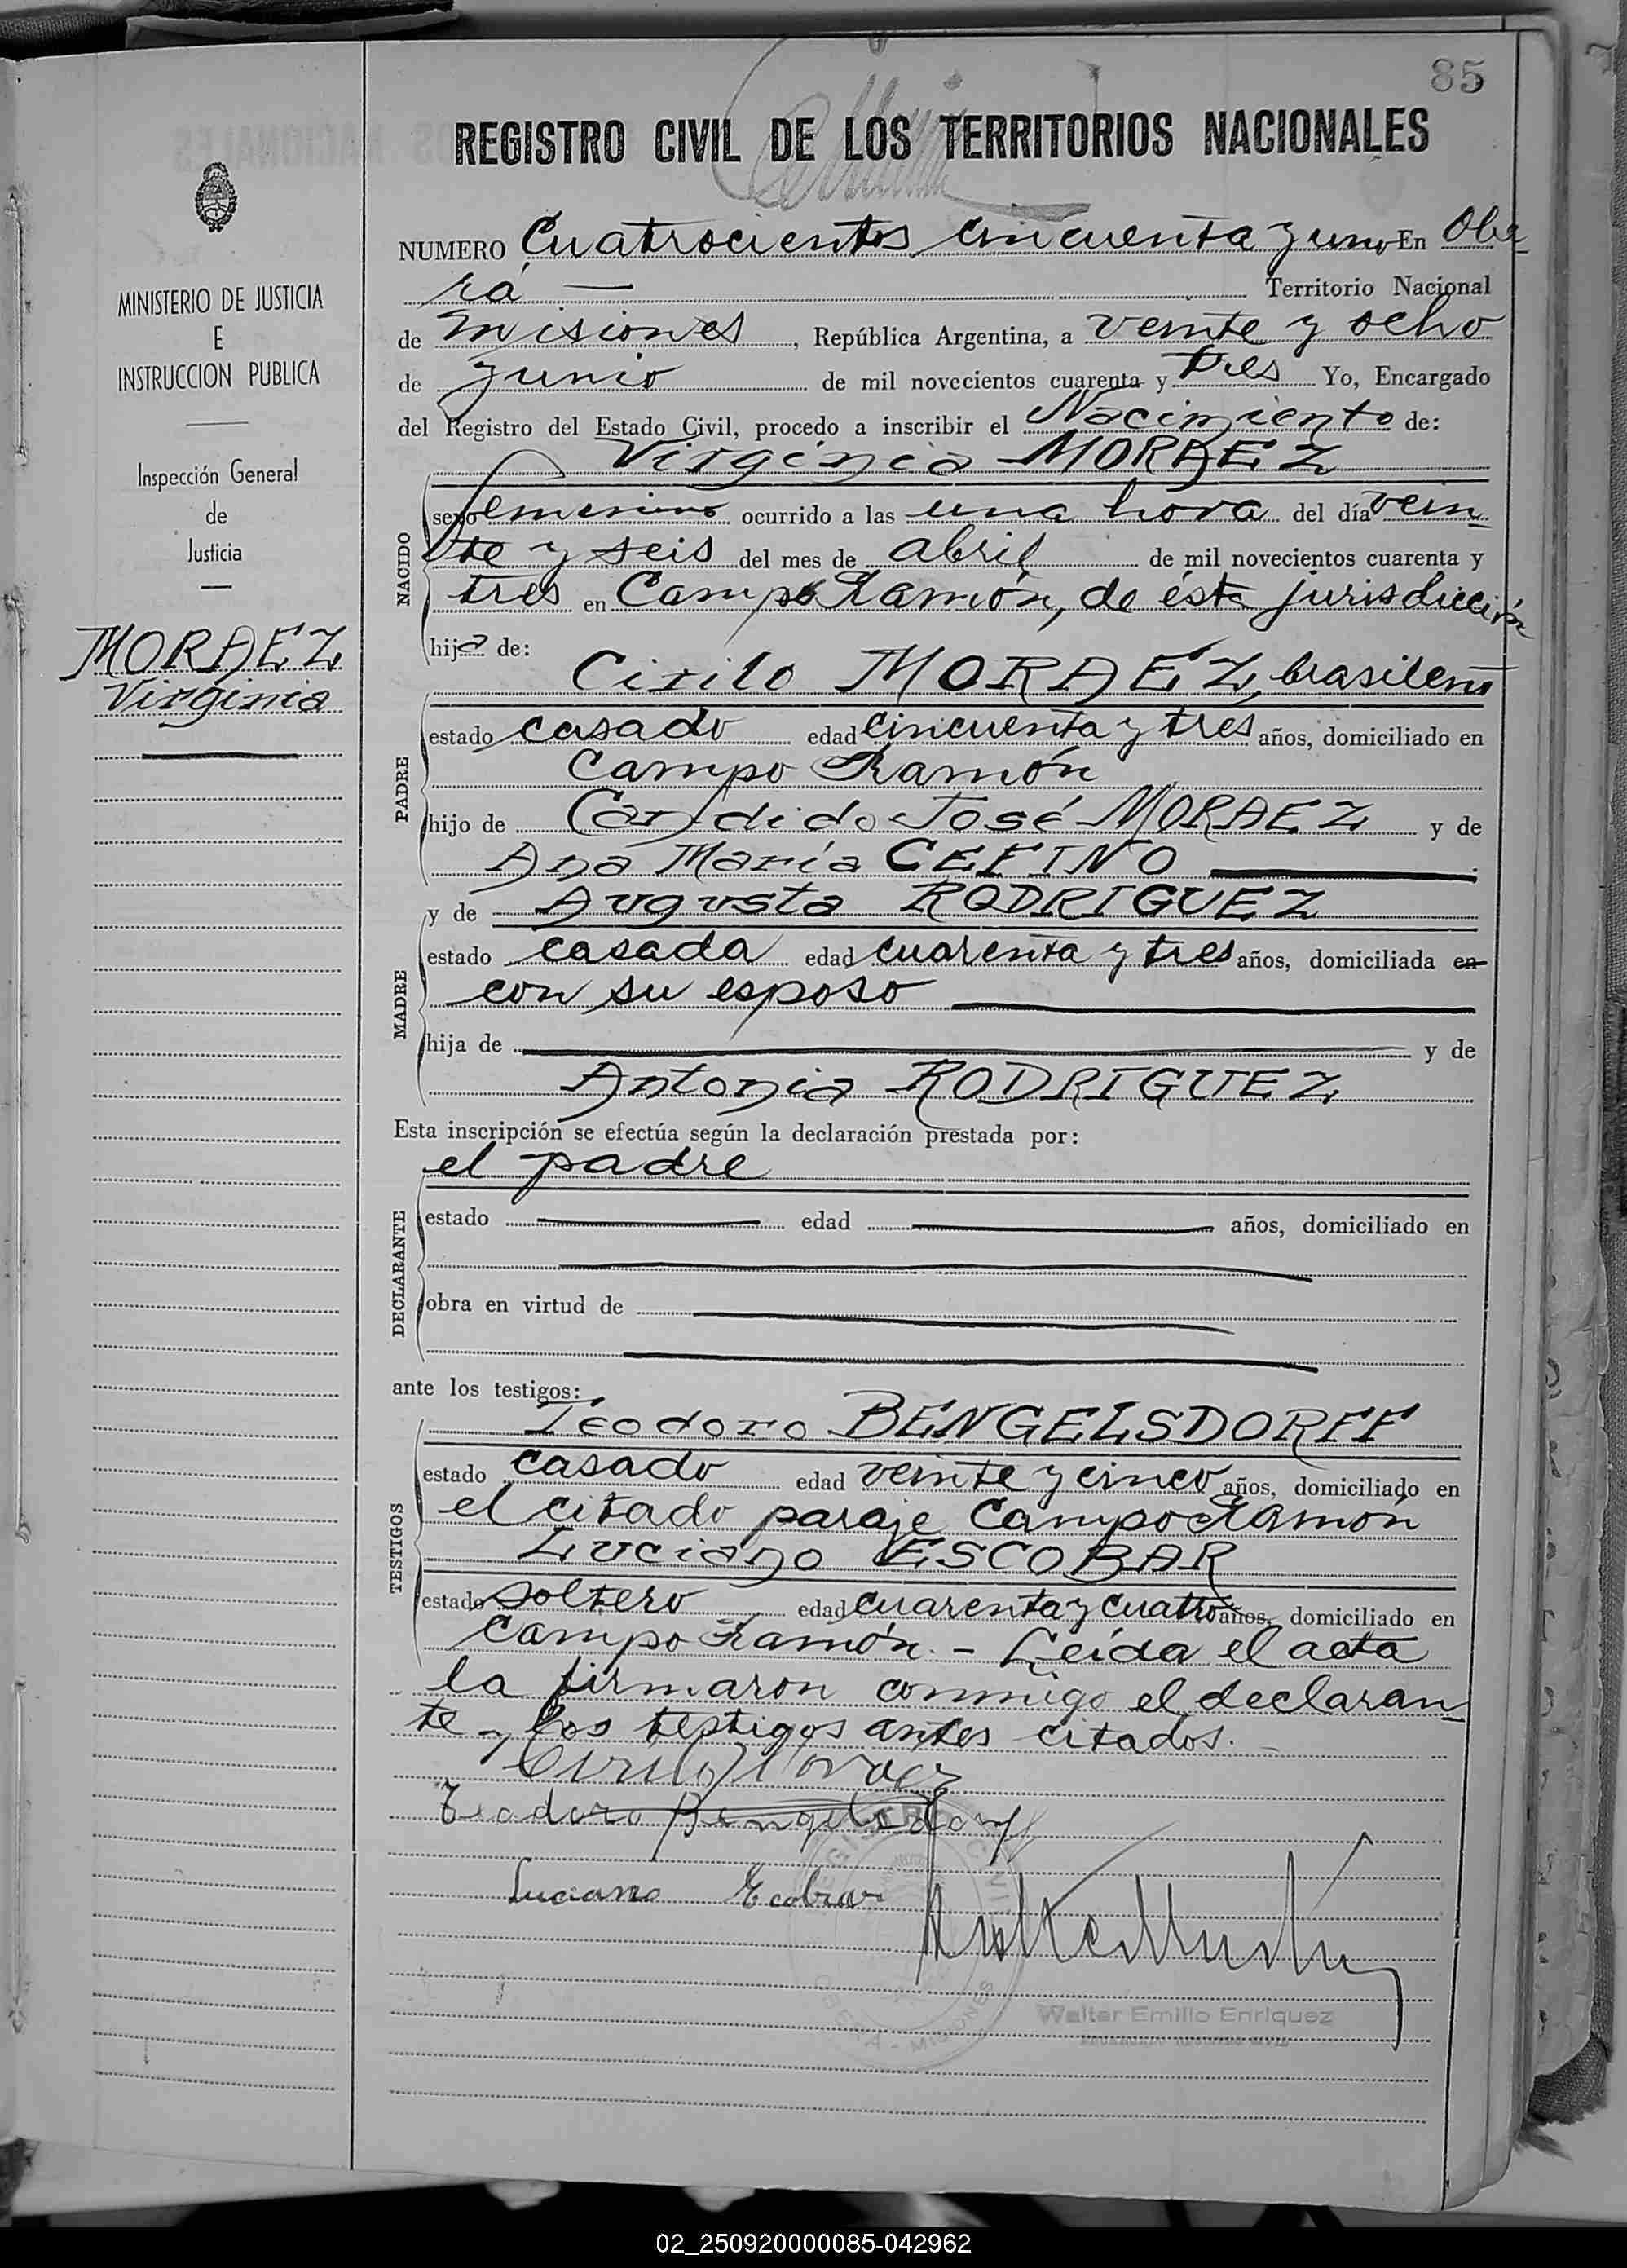 85
REGISTRO CIVIL DE LOS TERRITORIOS NACIONALES
MINISTERIO DE JUSTICIA
E
INSTRUCCION PUBLICA
Inspección General
de
Justicia
MORAEZ
Virginia
NUMERO Cuatrocientos cincuenta y uno En Obe-
rá — Territorio Nacional
de Misiones, República Argentina, a veinte y ocho
de junio de mil novecientos cuarenta y tres Yo, Encargado
del Registro del Estado Civil, procedo a inscribir el Nacimiento de:
Virginia MORAEZ
NACIDO
sexo femenino ocurrido a las una hora del día vein-
te y seis del mes de abril de mil novecientos cuarenta y
tres en Campo Ramón, de ésta jurisdicción
hija de:
Cirilo MORAEZ, brasileño
PADRE
estado casado edad cincuenta y tres años, domiciliado en
Campo Ramón
hijo de Candido José MORAEZ y de
Ana María CEFINO
y de Augusta RODRIGUEZ
MADRE
estado casada edad cuarenta y tres años, domiciliada en
con su esposo
hija de y de
Antonia RODRIGUEZ
Esta inscripción se efectúa según la declaración prestada por:
el padre
DECLARANTE
estado edad años, domiciliado en
obra en virtud de
ante los testigos:
Teodoro BENGELSDORFF
TESTIGOS
estado casado edad veinte y cinco años, domiciliado en
el citado paraje Campo Ramón
Luciano ESCOBAR
estado soltero edad cuarenta y cuatro años, domiciliado en
Campo Ramón. - Leída el acta
la firmaron conmigo el declaran-
te y los testigos antes citados. -
Cirilo Moraez
Teodoro Bengelsdorff
Luciano Escobar
REGISTRO CIVIL
OBERA - MISIONES
Walter Emilio Enriquez
02_250920000085-042962